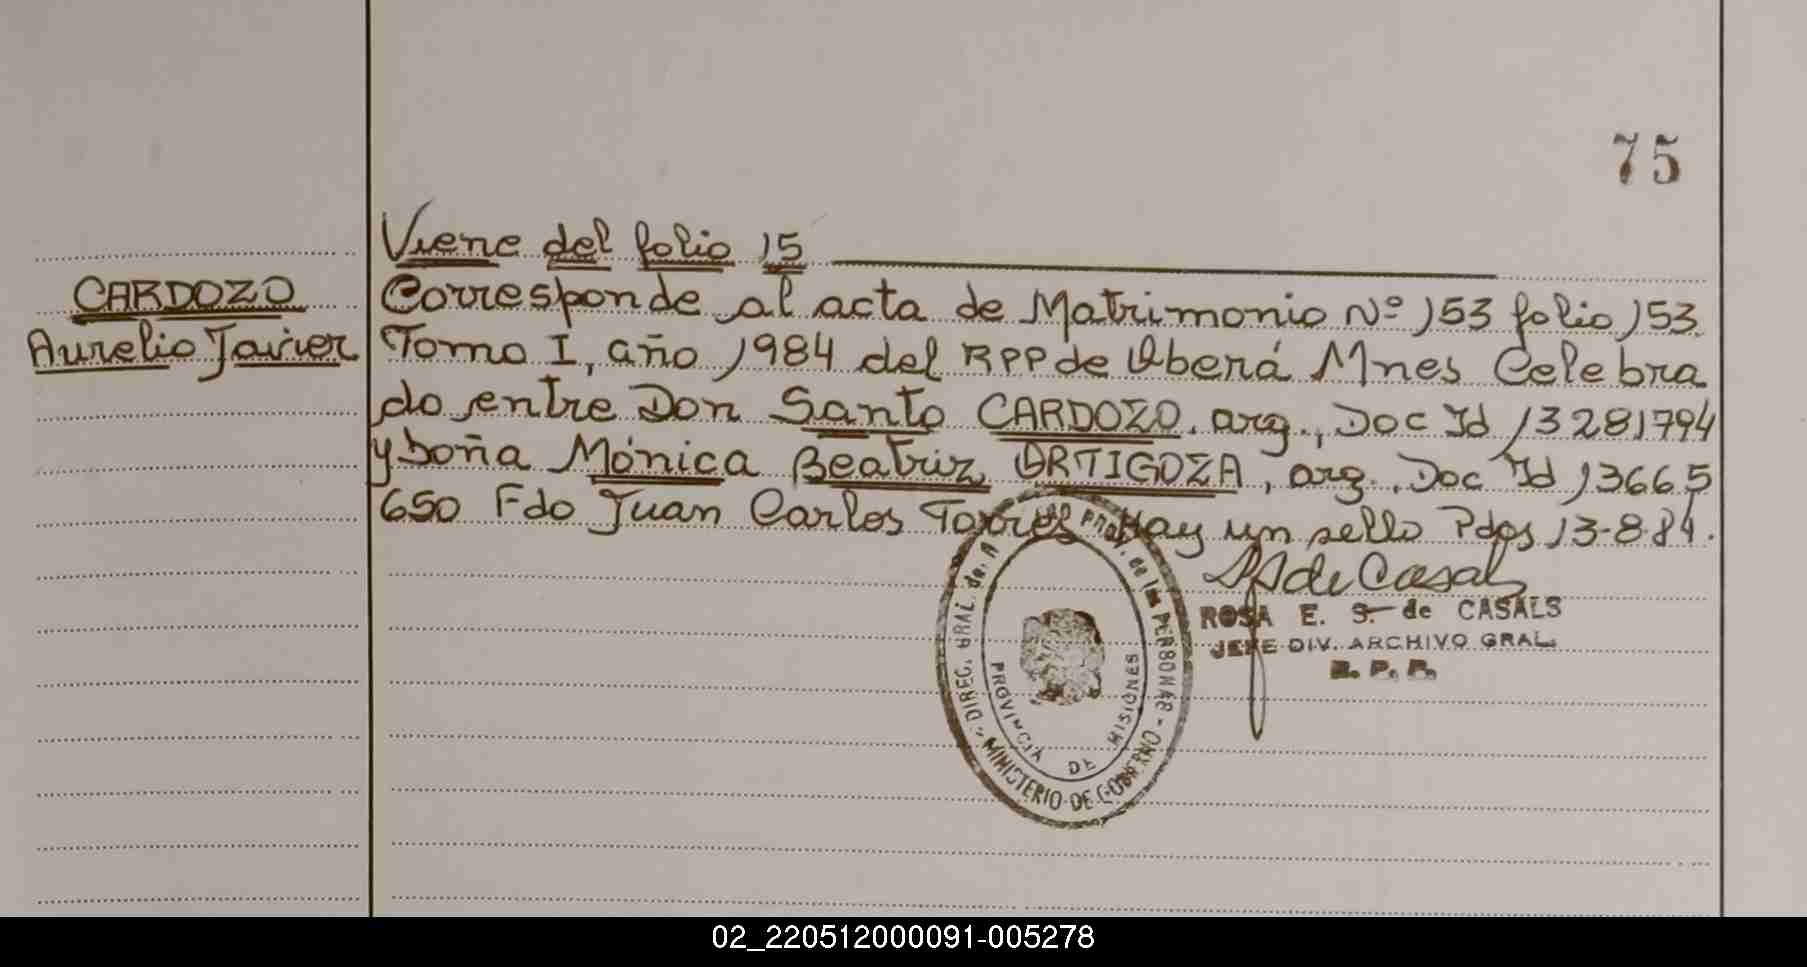 75
Viene del folio 15
CARDOZO
Aurelio Javier
Corresponde al acta de Matrimonio Nº 153 folio 153.
Tomo I, año 1984 del RPP de Oberá Mnes Celebra
do entre Don Santo CARDOZO, arg., Doc Id 13281794
y Doña Mónica Beatriz ORTIGOZA, arg., Doc Id 13665
650 Fdo Juan Carlos Torres Hay un sello Pdas 13-8-84.
ROSA E. S. de CASALS
JEFE DIV. ARCHIVO GRAL.
R. P. P.
DIREC. GRAL. de PROV. de las PERSONAS - MINISTERIO DE GOBIERNO
PROVINCIA DE MISIONES
02_220512000091-005278